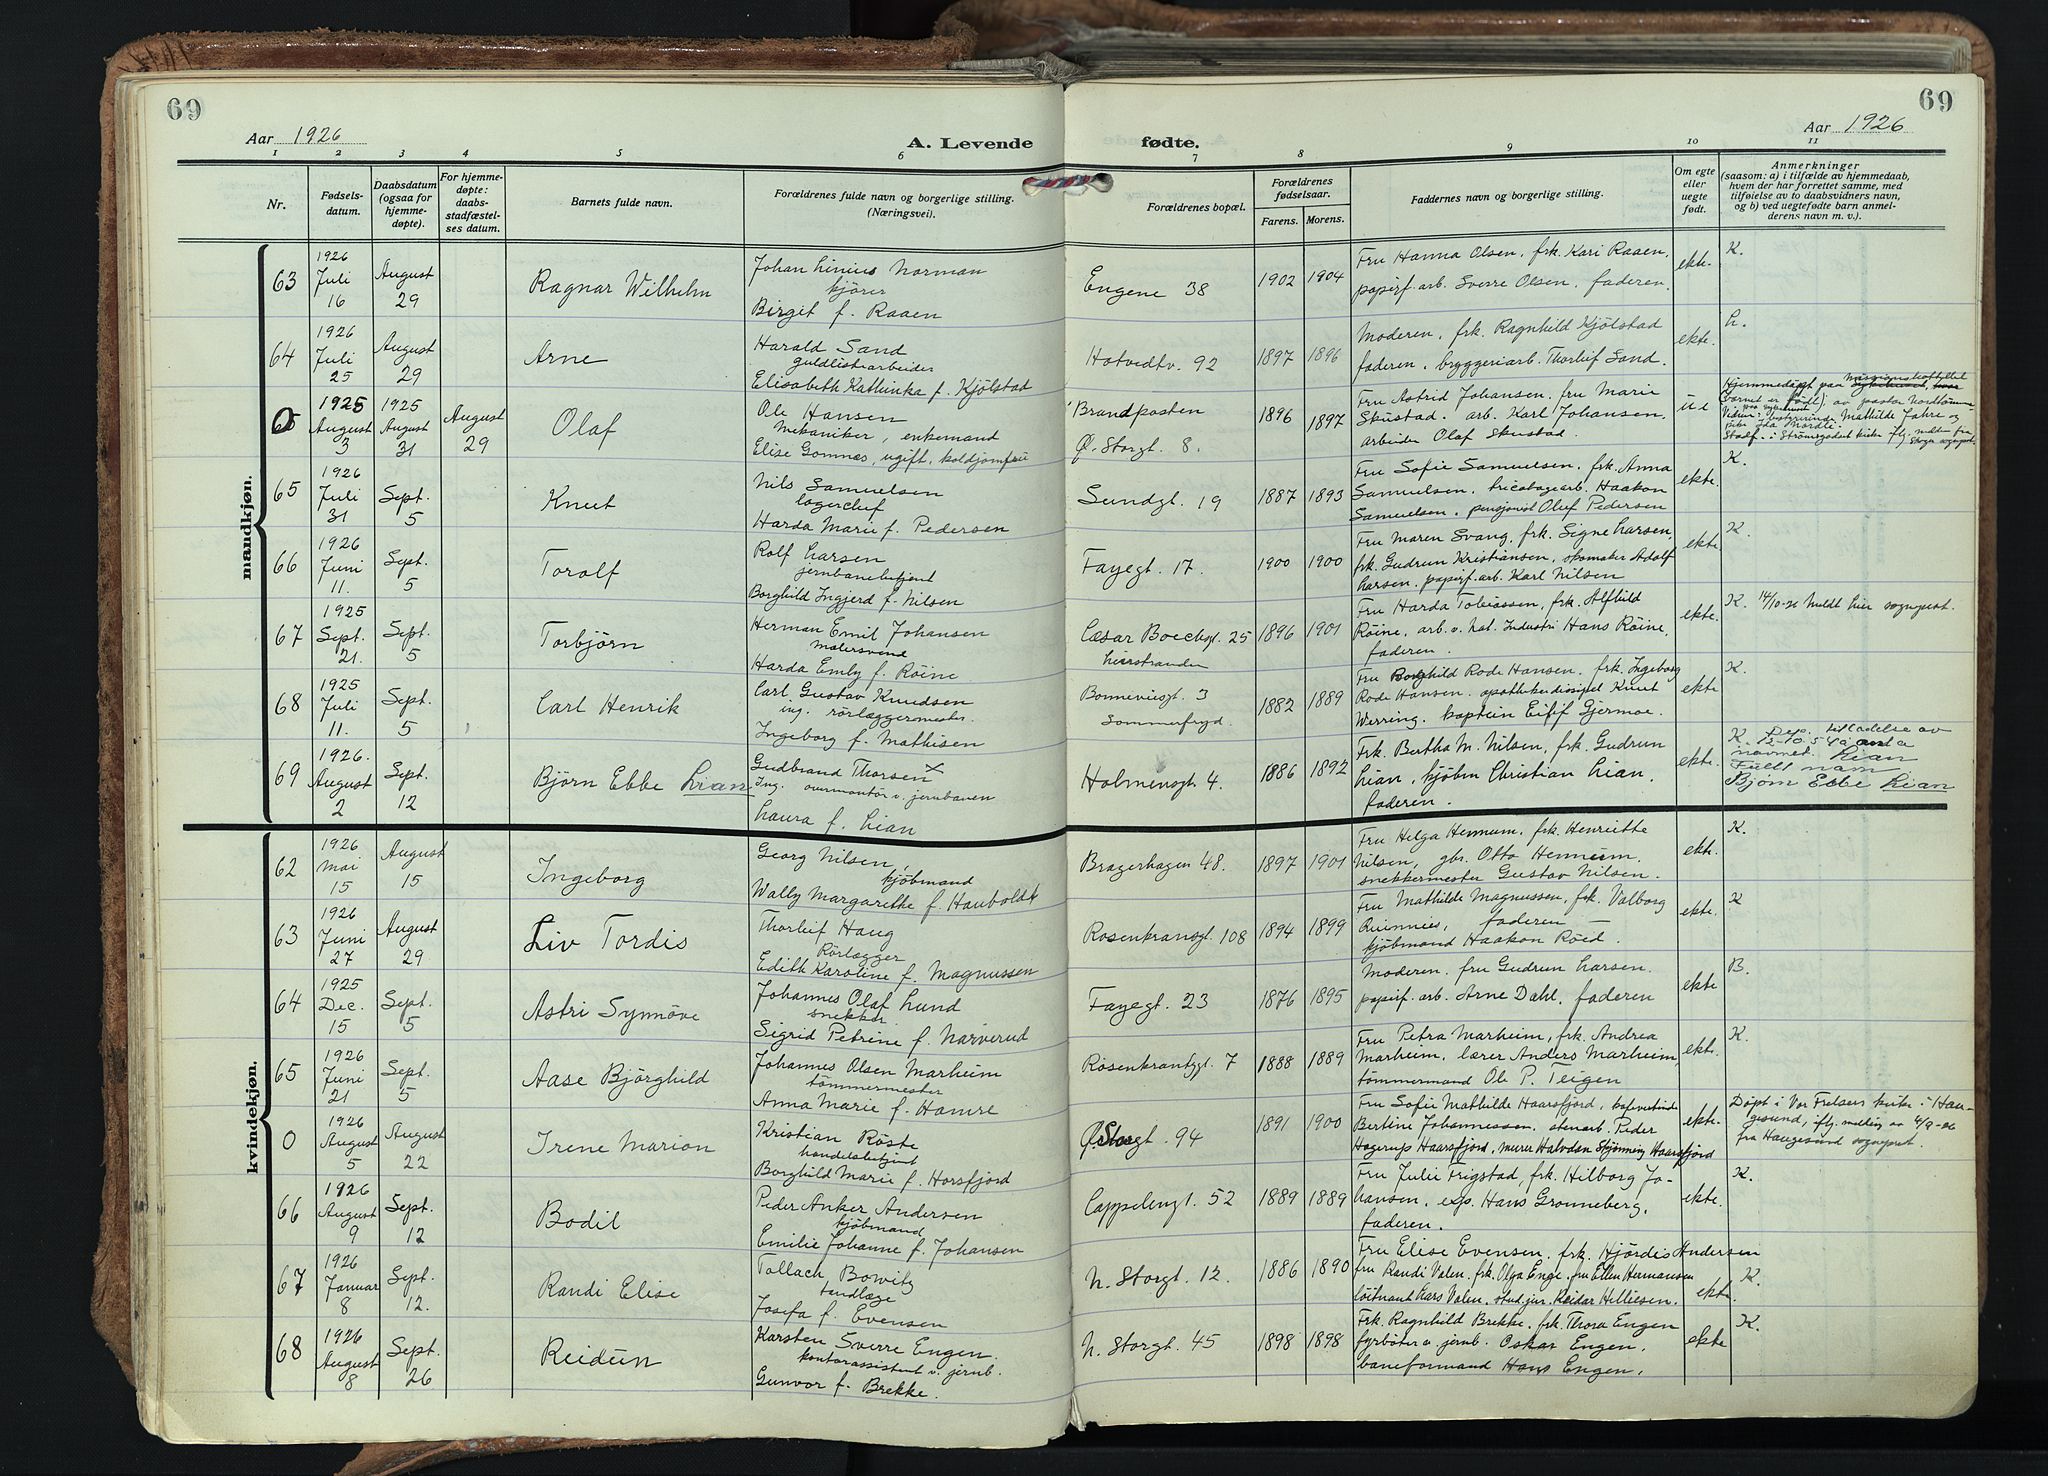 69
69
Aar 1926
A. Levende fødte.
Aar 1926
1 2 3 4 5 6 7 8 9 10 11
Nr.
Fødsels-
datum.
Daabsdatum
(ogsaa for
hjemme-
døpte).
For hjemme-
døpte:
daabs-
stadfæstel-
ses datum.
Barnets fulde navn.
Forældrenes fulde navn og borgerlige stilling.
(Næringsvei).
Forældrenes bopæl.
Forældrenes
fødselsaar.
Farens. Morens.
Faddernes navn og borgerlige stilling.
Om egte
eller
uegte
født.
Anmerkninger
(saasom: a) i tilfælde av hjemmedaab,
hvem der har forrettet samme, med
tilføielse av to daabsvidners navn,
og b) ved uegtefødte barn anmel-
derens navn m. v.).
mandkjøn.
63
1926
Juli
16
August
29
Ragnar Wilhelm
Johan Linius Norman
kjører
Birgit f. Raaen
Engene 38
1902 1904
Fru Hanna Olsen, frk. Kari Raaen,
papirf. arb. Sverre Olsen. faderen.
ekte.
K.
64
1926
Juli
25
August
29
Arne
Harald Sand
guldlistarbeider
Elisabeth Kathinka f. Kjölstad
Hotvedtv. 92
1897 1896
Moderen, frk. Ragnhild Kjölstad
faderen, bryggeriarb. Thorleif Sand.
ekte.
L.
0
1925
August
3
1925
August
31
August
29
Olaf
Ole Hansen
Mekaniker, enkemand
Elise Gomnæs, ugift, koldjomfru
Brandposten
Ø. Storgt. 8.
1896 1897
Fru Astrid Johansen, fru Marie
Skustad. arb. Karl Johansen,
arbeider Olaf Skustad.
ue
Hjemmedøpt paa
barnet er født) av pastor
Mathilde Jahre og
Stadf. i Strömsgodset kirke flg. melden fra
65
1926
Juli
31
Sept.
5
Knut
Nils Samuelsen
lagerchef
Harda Marie f. Pedersen
Sundgt. 19
1887 1893
Fru Sofie Samuelsen, frk. Anna
Samuelsen, tricotagearb. Haakon
Samuelsen, pensjonist Oluf Pedersen
ekte.
K.
66
1926
Juni
11.
Sept.
5
Torolf
Rolf Larsen
jernbanebetjent
Borghild Ingjerd f. Nilsen
Fayegt. 17.
1900 1900
Fru Maren Svang, frk. Signe Larsen,
frk. Gudrun Kristiansen, skomaker Adolf
Larsen, papirf. arb. Karl Nilsen
ekte
K.
67
1925
Sept.
21.
Sept.
5
Torbjörn
Herman Emil Johansen
malersvend
Harda Emly f. Röine
Cæsar Boecksgt. 25
Lierstranden
1896 1901
Fru Harda Tobiassen, frk. Alfhild
Röine, arb. v. Nat. Industri Hans Röine,
faderen.
ekte.
K. 14/10-26 Meldt Lier sogneprest.
68
1925
Juli
11.
Sept.
5
Carl Henrik
Carl Gustav Knudsen
ing. rörlæggermester.
Ingeborg f. Mathisen
Bonneviesgt. 3
Sommerfryd.
1882 1889
Fru Borghild Rode Hansen, frk. Ingeborg
Rode Hansen. apothekerdisipel Knut
Werring, kaptein Eilif Gjermoe.
ekte
K.
69
1926.
August
2
Sept.
12
Björn Ebbe Lian
Gudbrand Thorsen x
Ing. overmontør v. jernbanen
Laura f. Lian
Holmensgt 4.
1886 1892
Frk. Bertha M. Nilsen, frk. Gudrun
Lian, kjöbm Christian Lian,
faderen.
ekte.
K. Dep. tilladelse av
navnet Lian
Fullt navn
Bjørn Ebbe Lian
kvindekjøn.
62
1926
Mai
15
August
15
Ingeborg
Georg Nilsen,
kjöbmand
Wally Margarethe f. Hauboldt
Bragerhagen 48.
1897 1901
Fru Helga Hennum, frk. Henriette
Nilsen, gbr. Otto Hennum.
snekkermester Gustav Nilsen.
ekte.
K.
63
1926
Juni
27
August
29
Liv Tordis
Thorleif Haug
Rörlægger
Edith Karoline f. Magnussen
Rosenkransgt. 108
1894 1899
Fru Mathilde Magnussen, frk. Valborg
faderen
kjöbmand Haakon Röed.
ekte.
K
64
1925
Dec.
15
Sept.
5
Astri Synnöve
Johannes Olaf Lund
snekker.
Sigrid Petrine f. Narverud
Fayegt. 23
1876 1895
Moderen. fru Gudrun Larsen.
papirf. arb. Arne Dahl, faderen
ekte
B.
65
1926
Juni
21
Sept.
5
Aase Björghild
Johannes Olsen Marheim
tömmermester
Anna Marie f. Hamre
Rosenkrantzgt. 7
1888 1889
Fru Petra Marheim, frk. Andrea
Marheim, lærer Anders Marheim,
tömmermand Ole P. Teigen
ekte.
K.
0
1926
August
5
August
22
Irene Marion
Kristian Röste
handelsbetjent
Borghild Marie f. Horsfjord
Ø. Storgt. 94
1891 1900
Fru Sofie Mathilde Haarsfjord, kafeværtinde
Bertine Johannessen. stenarb. Peder
Hagerup Haarsfjord, murer Halvdan Skjönning Haarsfjord
ekte.
Døpt i Vor Frelsers kirke i Hau-
gesund, iflg. melding av 4/9-26
fra Haugesund sogneprest.
66
1926
August
9
Sept.
12
Bodil
Peder Anker Andersen
kjöbmand
Emilie Johanne f. Johansen
Cappelengt. 52
1889 1889
Fru Julie Frigstad, frk. Hilborg Jo-
hansen, exp. Hans Gronneberg,
faderen.
ekte.
K.
67
1926
Januar
8
Sept.
12.
Randi Elise
Tollach Bowitz
tandlæge
Josefa f. Evensen
N. Storgt. 12.
1886 1890
Fru Elise Evensen, frk. Hjördis Andersen
fru Randi Valen. frk. Olga Enge. fru Ellen Hermansen
löitnant Lars Valen, stud. jur. Reidar Hilliesen.
ekte.
K.
68
1926
August
8
Sept.
26
Reidun
Karsten Sverre Engen.
kontorassistent v. jernb.
Gunvor f. Brekke.
N. Storgt. 45
1898 1898
Frk. Ragnhild Brekke, frk. Thora Engen
fyrböter v. jernb. Oskar Engen,
baneformand Hans Engen,
ekte
K.